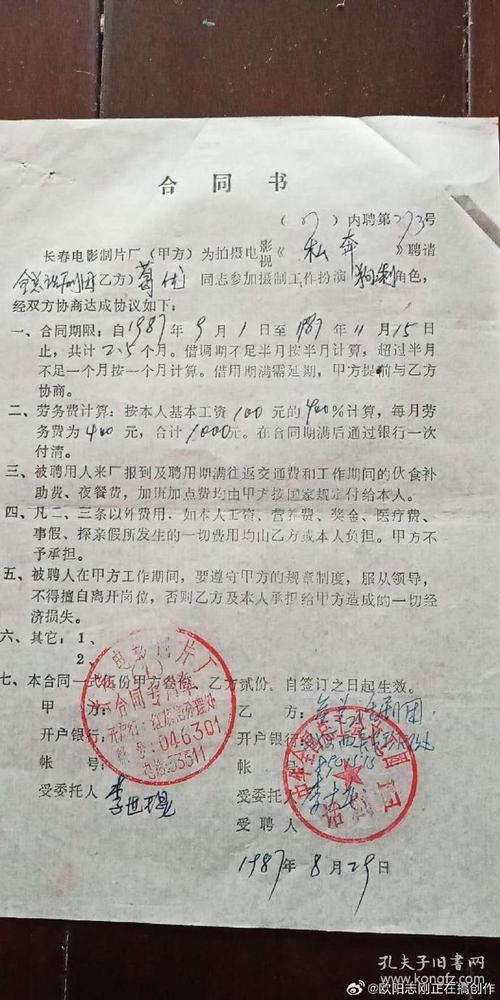 合同书
(87)内聘第273号
长春电影制片厂(甲方)为拍摄电影视《私奔》聘请
全总话剧团(乙方)葛优同志参加摄制工作扮演角色,
经双方协商达成协议如下:
一、合同期限:自1987年9月1日至1987年11月15日
止,共计2.5个月。借调期不足半月按半月计算,超过半月
不足一个月按一个月计算。借用期满需延期,甲方提前与乙方
协商。
二、劳务费计算:按本人基本工资100元的400%计算,每月劳
务费为400元,合计1000元。在合同期满后通过银行一次
付清。
三、被聘用人来厂报到及聘用期满往返交通费和工作期间的伙食补
助费、夜餐费,加班加点费均由甲方按国家规定付给本人。
四、凡二、三条以外费用,如本人工资、营养费、奖金、医疗费、
事假、探亲假所发生的一切费用均由乙方或本人负担。甲方不
予承担。
五、被聘人在甲方工作期间,要遵守甲方的规章制度,服从领导,
不得擅自离开岗位,否则乙方及本人承担给甲方造成的一切经
济损失。
六、其它:1、
2、
七、本合同一式伍份甲方叁份,乙方贰份,自签订之日起生效。
甲方:
开户银行:
帐号:
受委托人
电影制片厂
合同专用章
开户行:
帐号:046301
电话:53311
乙方:全总话剧团
开户银行:
帐号:
受委托人
受聘人
话剧团
1987年8月29日
孔夫子旧书网
@欧阳志刚正在搞创作